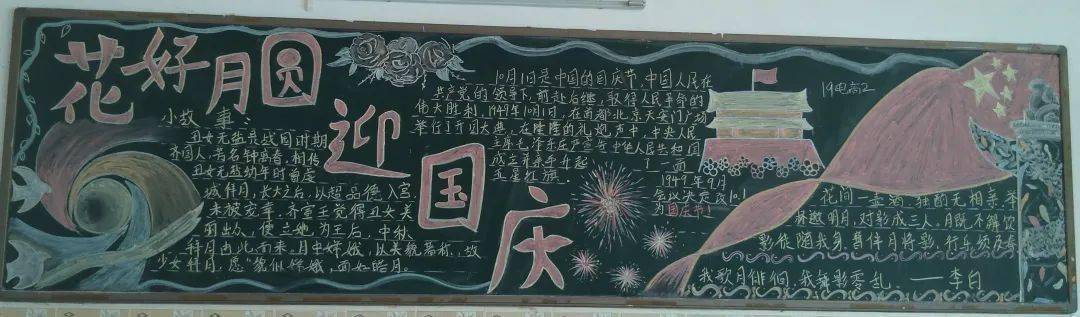 花好月圆
迎国庆
小故事：
丑女无盐是战国时期
齐国人，有名钟离春，相传
丑女无盐幼年时曾虔
诚拜月，长大之后，以超品德入宫
未被宠幸，齐宣王觉得丑女美
丽出众，便立她为王后，中秋
拜月由此而来，月中嫦娥，以美貌著称，故
少女拜月，愿"貌似嫦娥，面如皓月。
10月1日是中国的国庆节，中国人民在
共产党的领导下，前赴后继，取得人民革命的
伟大胜利，1949年10月1日，在首都北京天安门广场
举行了开国大典，在隆隆的礼炮声中，中央人民
主席毛泽东庄严宣告中华人民共和国
成立并亲手升起了一面
五星红旗。
1949年9月
会议决定改10.1
为国庆节！
19电高2
花间一壶酒，独酌无相亲，举
杯邀明月，对影成三人，月既不解饮
影徒随我身，暂伴月将影，行乐须及春
我歌月徘徊，我舞影零乱，——李白